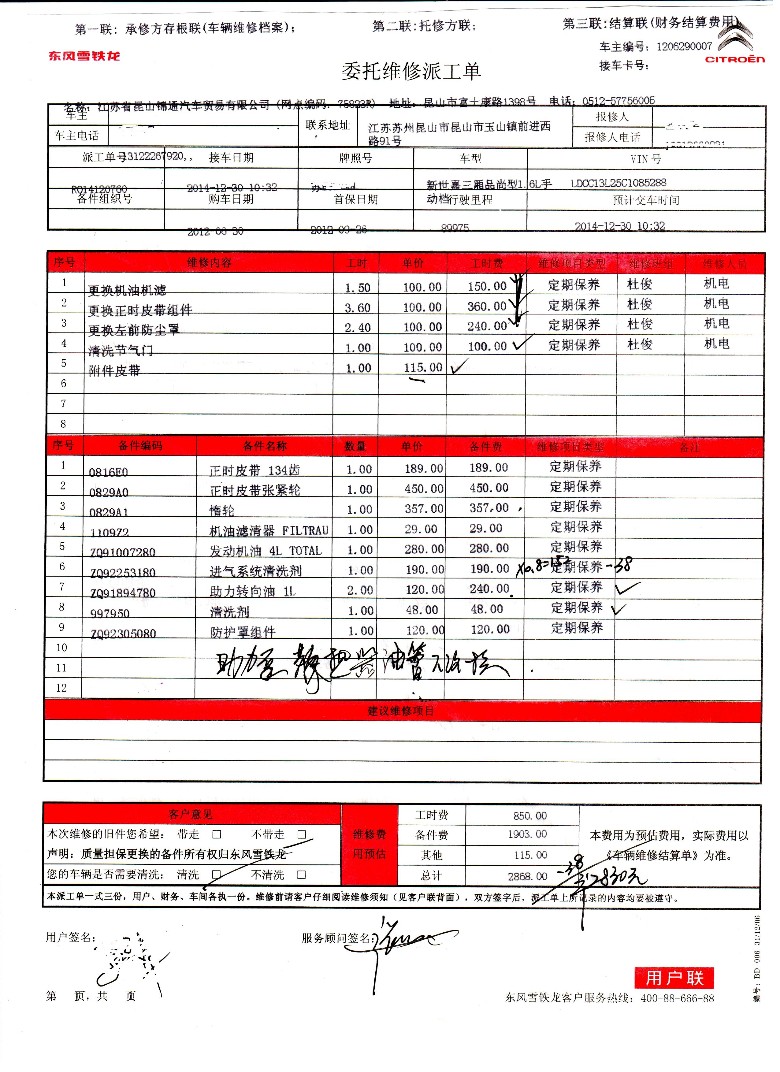 第一联: 承修方存根联(车辆维修档案); 第二联:托修方联; 第三联:结算联(财务结算费用)
东风雪铁龙
车主编号: 1206290007
CITROËN
接车卡号:
委托维修派工单
名称: 江苏省昆山锦通汽车贸易有限公司 (网点编码: 75823R) 地址: 昆山市富士康路1398号 电话: 0512-57756005
车主 联系地址 江苏苏州昆山市昆山市玉山镇前进西路91号 报修人
车主电话 报修人电话
派工单号 3122267920,, 接车日期 牌照号 车型 VIN号
RO14120760 2014-12-30 10:32 新世嘉三厢品尚型1.6L手动档 LDCC13L25C1085288
备件组织号 购车日期 首保日期 行驶里程 预计交车时间
2012-06-30 2012-09-26 89975 2014-12-30 10:32
序号 维修内容 工时 单价 工时费 维修项目类型 维修班组 维修人员
1 更换机油机滤 1.50 100.00 150.00 定期保养 杜俊 机电
2 更换正时皮带组件 3.60 100.00 360.00 定期保养 杜俊 机电
3 更换左前防尘罩 2.40 100.00 240.00 定期保养 杜俊 机电
4 清洗节气门 1.00 100.00 100.00 定期保养 杜俊 机电
5 附件皮带 1.00 115.00
6
7
8
序号 备件编码 备件名称 数量 单价 备件费 维修项目类型 备注
1 0816E0 正时皮带 134齿 1.00 189.00 189.00 定期保养
2 0829A0 正时皮带张紧轮 1.00 450.00 450.00 定期保养
3 0829A1 惰轮 1.00 357.00 357.00 定期保养
4 1109Z2 机油滤清器 FILTRAU 1.00 29.00 29.00 定期保养
5 ZQ91007280 发动机油 4L TOTAL 1.00 280.00 280.00 定期保养
6 ZQ92253180 进气系统清洗剂 1.00 190.00 190.00 X0.8=152 定期保养 -38
7 ZQ91894780 助力转向油 1L 2.00 120.00 240.00 定期保养
8 997950 清洗剂 1.00 48.00 48.00 定期保养
9 ZQ92305080 防护罩组件 1.00 120.00 120.00 定期保养
10
助力泵 油管
11
12
建议维修项目
客户意见 维修费用预估 工时费 850.00
本次维修的旧件您希望: 带走 □ 不带走 □ 备件费 1903.00 本费用为预估费用, 实际费用以《车辆维修结算单》为准。
声明: 质量担保更换的备件所有权归东风雪铁龙 其他 115.00
您的车辆是否需要清洗: 清洗 □ 不清洗 □ 总计 2868.00 -38 2830元
本派工单一式三份, 用户、财务、车间各执一份。维修前请客户仔细阅读维修须知 (见客户联背面), 双方签字后, 派工单上所记录的内容均要被遵守。
用户签名: 服务顾问签名:
用户联
第 页, 共 页
东风雪铁龙客户服务热线: 400-88-666-88